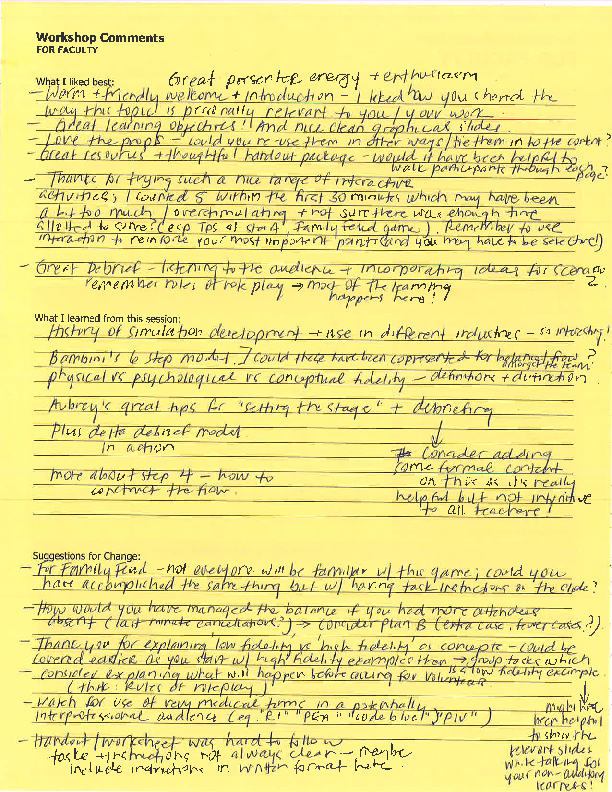 Workshop Comments
FOR FACULTY
What I liked best: Great presenter energy + enthusiasm
- Warm + friendly welcome + introduction - I liked how you shared the
way this topic is personally relevant to you / your work.
- Great learning objectives! And nice clean graphics as slides.
- Love the props - could you re-use them in other ways / tie them in to the content?
Great resources + thoughtful handout package - would it have been helpful to
walk participants through each page?
- Thanks for trying such a nice range of interactive
activities; I counted 5 within the first 30 minutes which may have been
a bit too much / overstimulating + not sure there was enough time
allotted to some (esp Tps at start, Family feud game). Remember to use
interaction to reinforce your most important points (and you may have to be selective!)
- Great Debrief - listening to the audience + incorporating ideas for scenario
2.
remember rules of role play → most of the learning
happens here!
What I learned from this session:
History of simulation development + use in different industries - so interesting!
Bambini's 6 step model. / could these have been copresented for balanced flow ?
amongst the team
physical vs psychological vs conceptual fidelity - definitions + distinction
Aubrey's great tips for "setting the stage" + debriefing
Plus delta debrief model
in action
↓
Consider adding
some formal content
on this as it's really
helpful but not intuitive
to all teachers!
more about step 4 - how to
construct the flow.
Suggestions for Change:
- For Family Feud - not everyone will be familiar w/ this game; could you
have accomplished the same thing but w/ having task instructions on the slide?
- How would you have managed the balance if you had more attendees
absent (last minute cancellations?) → Consider Plan B (extra case, fewer cases?).
- Thank you for explaining 'low fidelity vs 'high fidelity' as concepts - could be
covered earlier as you start w/ high fidelity examples then → group tasks which
is a low fidelity example
consider explaining what will happen before asking for volunteers
(think: Rules of roleplay)
- Watch for use of very medical terms in a potentially
interprofessional audience (eg. "RT" "PEA" "code blue") "PIV" )
- Handout / worksheet was hard to follow
tasks + instructions not always clear - maybe
include instructions in written format here.
might have
been helpful
to show the
relevant slides
while talking for
your non-auditory
learners!